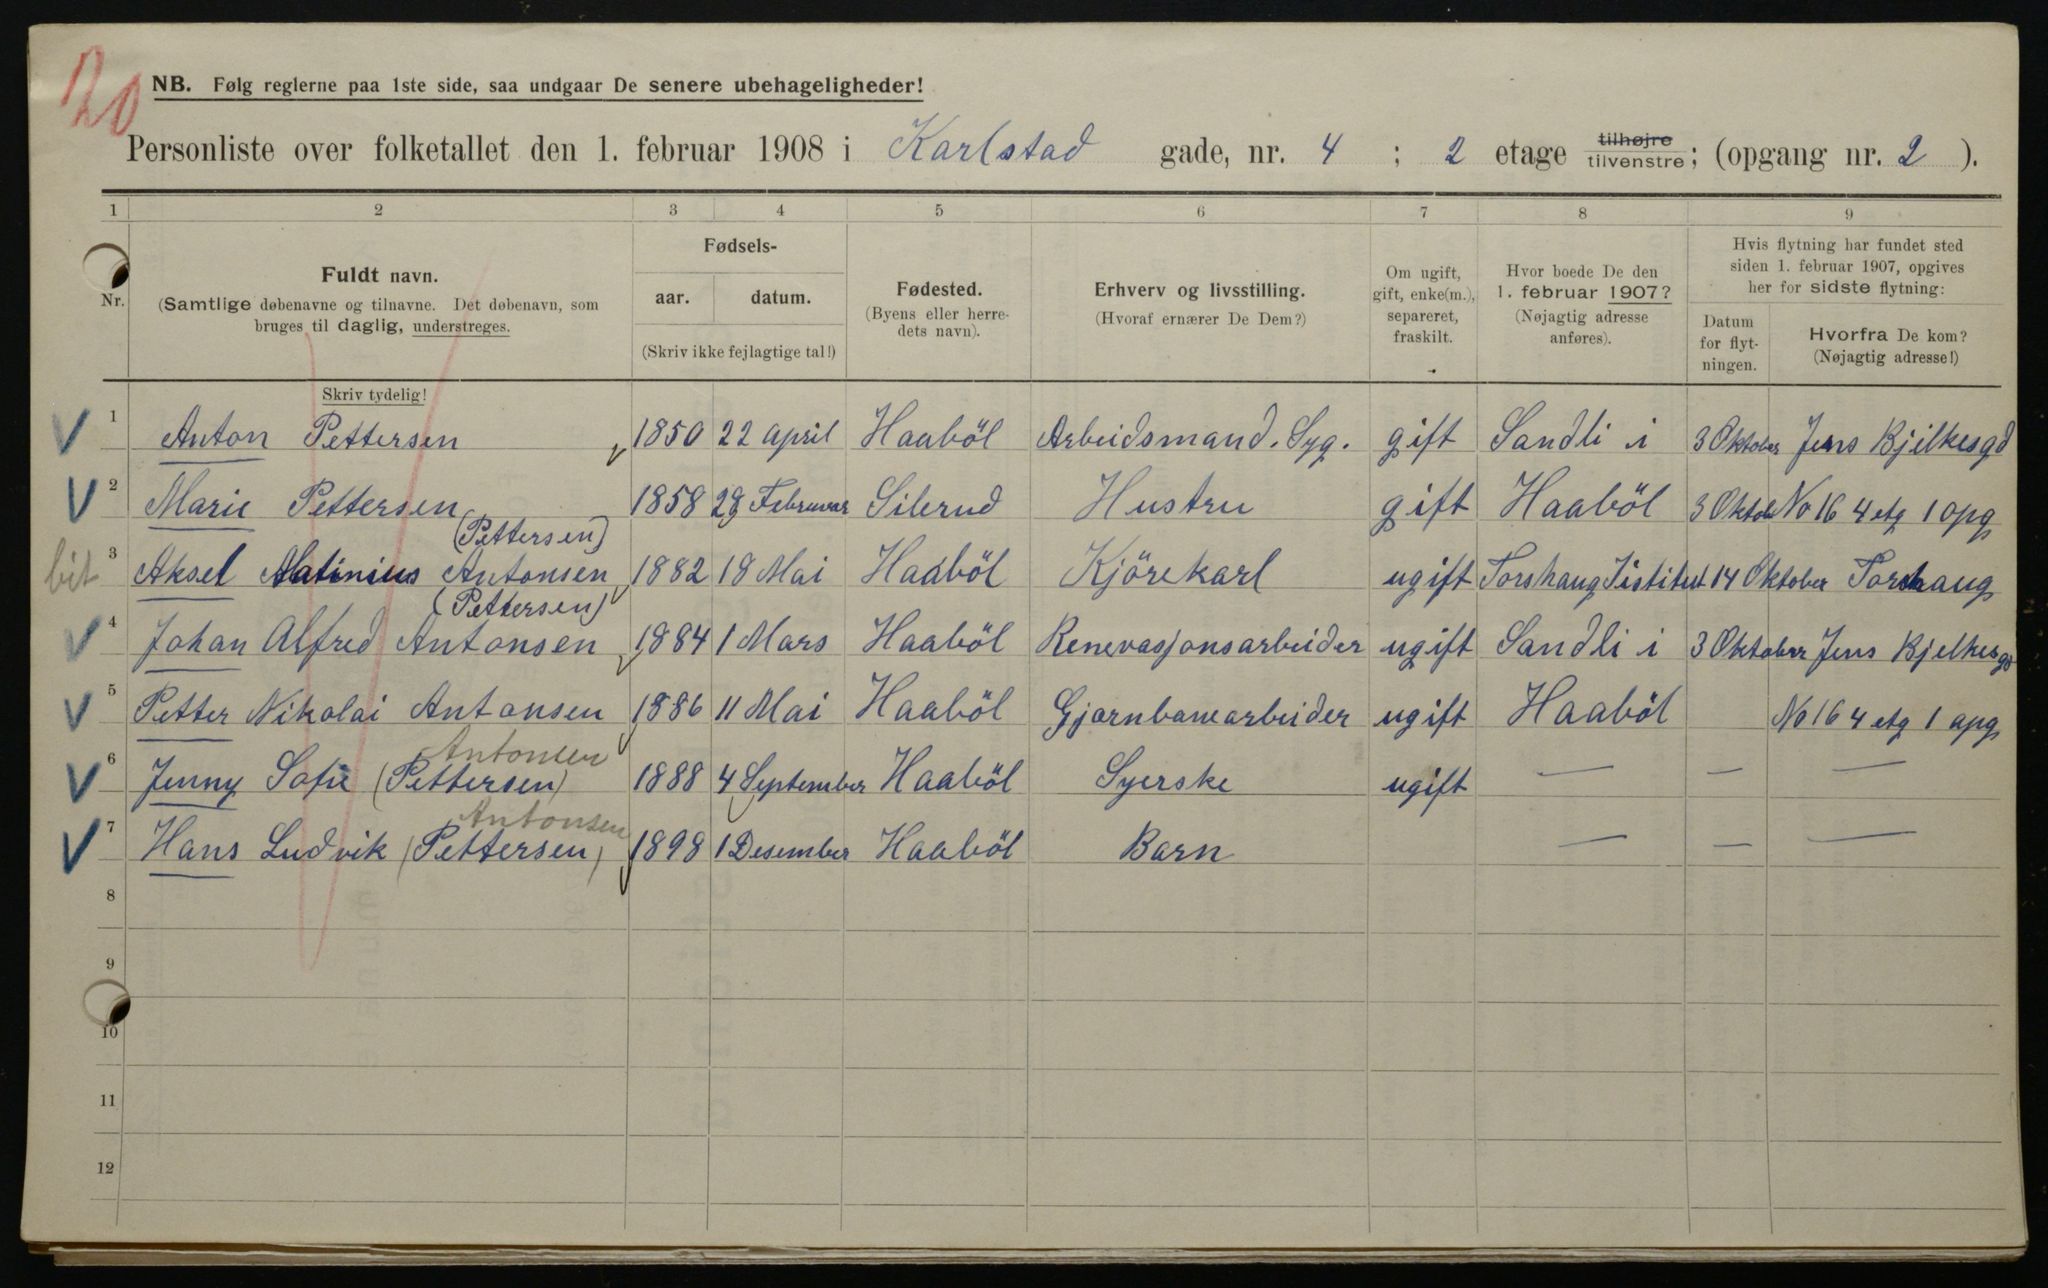 20
NB. Følg reglerne paa 1ste side, saa undgaar De senere ubehageligheder!
Personliste over folketallet den 1. februar 1908 i Karlstad gade, nr. 4 ; 2 etage tilhøjre tilvenstre; (opgang nr. 2 ).
1 2 3 4 5 6 7 8 9
Nr.
Fuldt navn.
(Samtlige døbenavne og tilnavne. Det døbenavn, som
bruges til daglig, understreges.
Skriv tydelig!
Fødsels-
aar. datum.
(Skriv ikke fejlagtige tal!)
Fødested.
(Byens eller herre-
dets navn).
Erhverv og livsstilling.
(Hvoraf ernærer De Dem?)
Om ugift,
gift, enke(m.),
separeret,
fraskilt.
Hvor boede De den
1. februar 1907?
(Nøjagtig adresse
anføres).
Hvis flytning har fundet sted
siden 1. februar 1907, opgives
her for sidste flytning:
Datum
for flyt-
ningen.
Hvorfra De kom?
(Nøjagtig adresse!)
1 Anton Pettersen 1850 22 april Haaböl Arbeidsmand. Syg. gift Sandli i 3 Oktober Jens Bjelkesgd
2 Marie Pettersen 1858 28 Februar Silerud Hustru gift Haaböl 3 Oktob No 16 4 etg 1 opg
(Pettersen)
3 Aksel Antonsen 1882 18 Mai Haaböl Kjörekarl ugift Torshaug 14 Oktober Torshaug
(Pettersen)
4 Johan Alfred Antonsen 1884 1 Mars Haaböl Renevasjonsarbeider ugift Sandli i 3 Oktober Jens Bjelkesgd
5 Petter Nikolai Antonsen 1886 11 Mai Haaböl Gjærnbanearbeider ugift Haaböl No 16 4 etg 1 apg
Antonsen
6 Jenny Sofie (Pettersen) 1888 4 September Haaböl Syerske ugift — — —
Antonsen
7 Hans Ludvik (Pettersen) 1898 1 Desember Haaböl Barn — — —
8
9
10
11
12